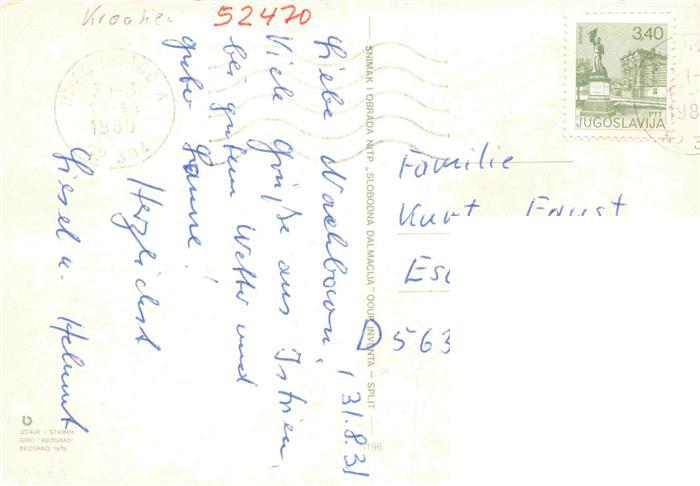 Kroatien
52470
Liebe Nachbarn, 31.8.31
Viele Grüße aus Istrien,
bei gutem Wetter und
guter Laune!
Herzlichst
Gisel u. Helmut
SNIMAK I OBRADA NITP „SLOBODNA DALMACIJA" OOUR INVENTA – SPLIT
3,40
PTT
JUGOSLAVIJA
1980
Familie
Kurt Faust
D 563
IZDAJE I ŠTAMPA
GIRO "BEOGRAD"
BEOGRAD, 1978
196